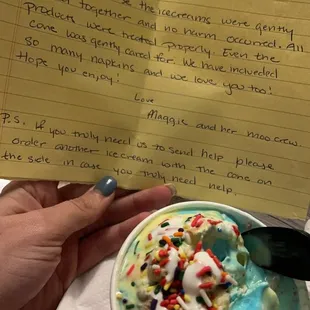 the icecreams were gently
together and no harm occurred. All
Products were treated properly. Even the
cone was gently cared for. We have included
so many napkins and we love you too!
Hope you enjoy!
Love
Maggie and her moo crew
P.S. if you truly need us to send help, please
order another ice cream with the cone on
the side in case you truly need help.